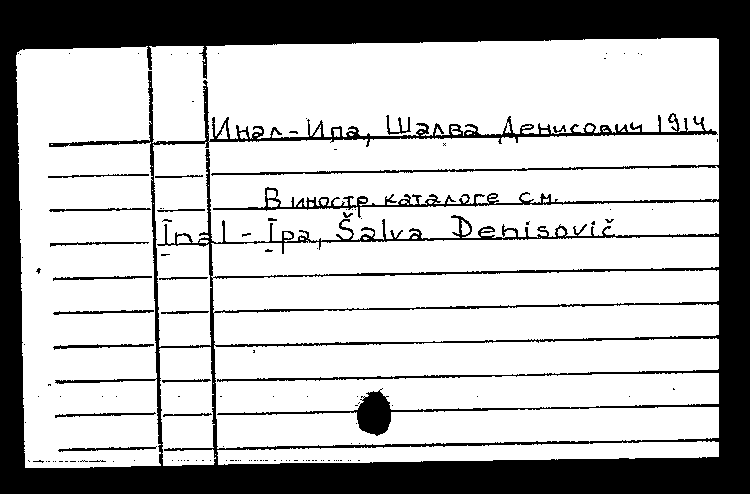 Инал-Ипа, Шалва Денисович 1914.
В иностр. каталоге см.
Inal-Ipa, Šalva Denisovič